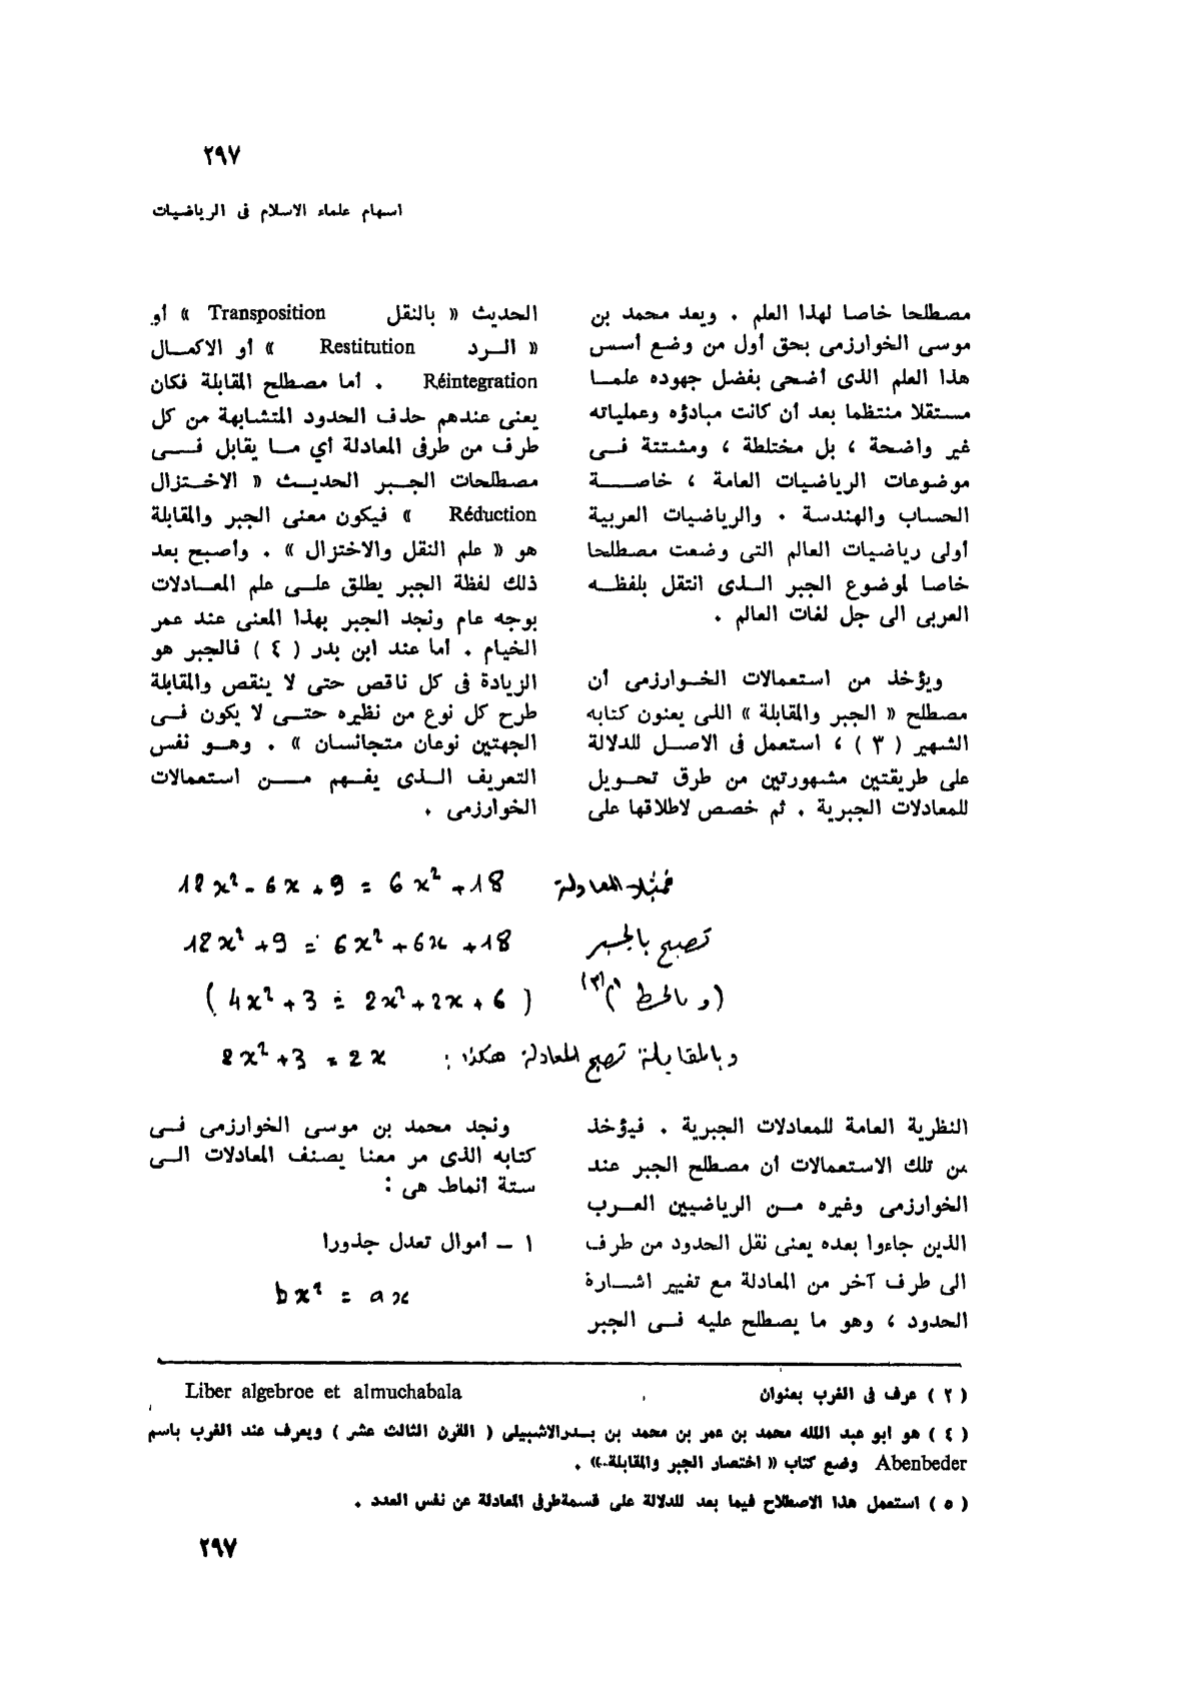 ٢٩٧
اسهام علماء الاسلام فى الرياضيات
مصطلحا خاصا لهذا العلم . ويعد محمد بن
موسى الخوارزمى بحق أول من وضع أسس
هذا العلم الذى أضحى بفضل جهوده علمــا
مستقلا منتظما بعد أن كانت مبادؤه وعملياته
غير واضحة ، بل مختلطة ، ومشتتة فــى
موضوعات الرياضيات العامة ، خاصــــة
الحساب والهندسة . والرياضيات العربية
أولى رياضيات العالم التى وضعت مصطلحا
خاصا لموضوع الجبر الــذى انتقل بلفظــه
العربى الى جل لغات العالم .
ويؤخذ من استعمالات الخــوارزمى أن
مصطلح « الجبر والمقابلة » اللى يعنون كتابه
الشهير ( ٣ ) ، استعمل فى الاصــل للدلالة
على طريقتين مشهورتين من طرق تحــويل
للمعادلات الجبرية . ثم خصص لاطلاقها على
الحديث « بالنقل Transposition » أو
« الــرد Restitution » أو الاكمــال
Réintegration . أما مصطلح المقابلة فكان
يعنى عندهم حذف الحدود المتشابهة من كل
طرف من طرفى المعادلة أي مــا يقابل فــــى
مصطلحات الجــبر الحديــث « الاخــتزال
Réduction » فيكون معنى الجبر والمقابلة
هو « علم النقل والاختزال » . وأصبح بعد
ذلك لفظة الجبر يطلق علــى علم المعــادلات
بوجه عام ونجد الجبر بهذا المعنى عند عمر
الخيام . أما عند ابن بدر ( ٤ ) فالجبر هو
الزيادة فى كل ناقص حتى لا ينقص والمقابلة
طرح كل نوع من نظيره حتــى لا يكون فــى
الجهتين نوعان متجانسان » . وهــو نفس
التعريف الــذى يفــهم مــــن استعمالات
الخوارزمى .
فمثلا المعادلة 12x² - 6x + 9 = 6x² + 18
تصبح بالجبر 12x² + 9 = 6x² + 6x + 18
(و بالحط ) (٣) ( 4x² + 3 = 2x² + 2x + 6 )
وبالمقابلة تصبح المعادلة هكذا : 2x² + 3 = 2x
النظرية العامة للمعادلات الجبرية . فيؤخذ
من تلك الاستعمالات أن مصطلح الجبر عند
الخوارزمى وغيره مــن الرياضيين العــرب
الذين جاءوا بعده يعنى نقل الحدود من طرف
الى طرف آخر من المعادلة مع تغيير اشــارة
الحدود ، وهو ما يصطلح عليه فــى الجبر
ونجد محمد بن موسى الخوارزمى فــى
كتابه الذى مر معنا يصنف المعادلات الــى
ستة انماط هى :
١ – أموال تعدل جذورا
bx² = ax
( ٢ ) عرف فى الغرب بعنوان Liber algebroe et almuchabala
( ٤ ) هو ابو عبد الله محمد بن عمر بن محمد بن بــدرالاشبيلى ( القرن الثالث عشر ) ويعرف عند الغرب باسم
Abenbeder وضع كتاب « اختصار الجبر والمقابلة » .
( ٥ ) استعمل هذا الاصطلاح فيما بعد للدلالة على قسمةطرفى المعادلة عن نفس العدد .
٢٩٧